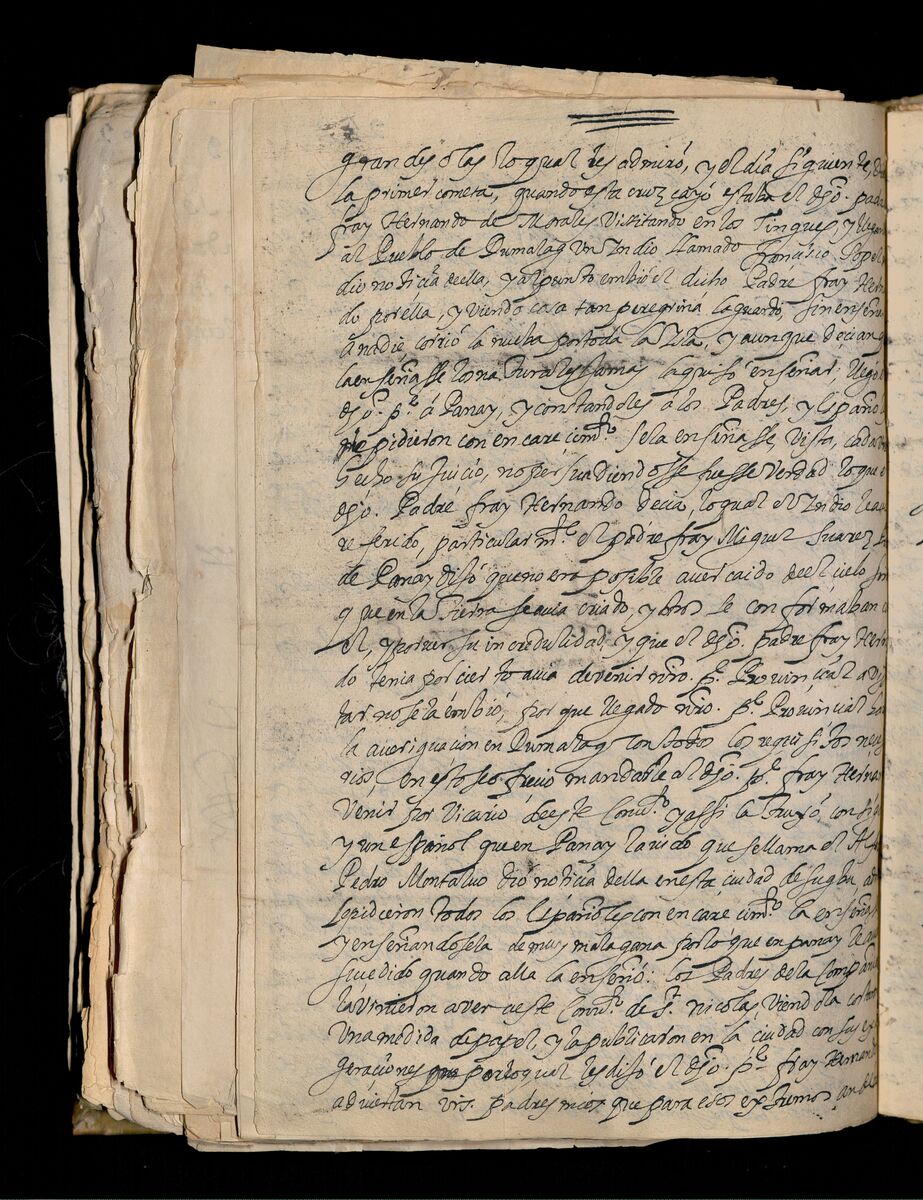 grandes olas lo qual les admiró, y el dia siguiente, de
la primer cometa, quando esta cruz cayó estaba el dho. padre
fray Hernando de Morales Visitando en los Tingues y llegan
al Pueblo de Dumalag Un Indio llamado Francisco Sopel
dio noticia de ella, y al punto embió el dicho Padre fray Hern
do por ella, y viendo cosa tan peregrina la guardo, sin enseña
a nadie, corrió la nueba por toda la Isla, y aunque decian q
la enseñasse los naturales jamas la quiso enseñar, llegó e
dho. pe. á Panay, y constandoles a los Padres, y españo
le pidieron con encarecimto. se la enseñasse, vista, cada
hecho su Juicio, no persuadiendosse fuesse verdad lo que e
dho. Padre fray Hernando decia, lo qual el Indio le a
referido, particularmte. el padre fray Miguel Suarez
de Panay dijó que no era posible aver caido de el cielo
que en la Tierra se avia criado, y otros se conformaban c
el, y por ver su incredulidad, y que el dho. padre fray Hern
do tenia por cierto avia de venir nro. pe. Provincial a vis
tar no se la embió, por que llegado nro. pe. Provincial
la averiguacion en Dumalag con todos los requisitos nese
rios, en esto se ofrecio mandable al dho. pe. fray Herna
Venir por Vicario de este Convto. y assi la trujó consi
y un español que en Panay la vido que se llama el
Pedro Montalvo dio noticia della en esta ciudad de Sugbu
lo pidieron todos los españoles con encarecimto. la enseña
y enseñandosela de muy mala gana por lo que en panay le
sucedido quando alla la enseñó: los Padres de la Compañ
la vinieron a ver a este Convto. de S. Nicolas, viendola cortar
Una medida de papel, y la publicaron en la ciudad con sus ex
geraciones por lo qual les dijó el dho. pe. fray Hernand
adviertan vrs. padres mios que para esos extremos